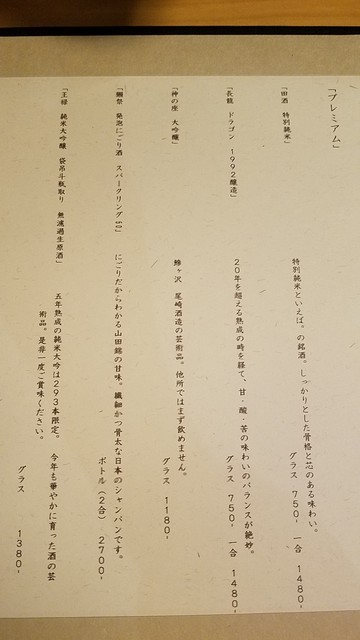 「プレミアム」
「田酒　特別純米」
特別純米といえば。の銘酒。しっかりとした骨格と芯のある味わい。
グラス　７５０-　一合　１４８０-
「長龍　ドラゴン　１９９２醸造」
２０年を越える熟成の時を経て、甘・酸・苦の味わいのバランスが絶妙。
グラス　７５０-　一合　１４８０-
「神の座　大吟醸」
鰺ヶ沢　尾崎酒造の芸術品。他所ではまず飲めません。
グラス　１１８０-
「獺祭　発泡にごり酒　スパークリング50」
にごりだからわかる山田錦の甘味。繊細かつ骨太な日本のシャンパンです。
ボトル（２合）　２７００-
「王禄　純米大吟醸　袋吊斗瓶取り　無濾過生原酒」
五年熟成の純米大吟は２９３本限定。　今年も華やかに育った酒の芸
術品。是非一度ご賞味ください。
グラス　１３８０-